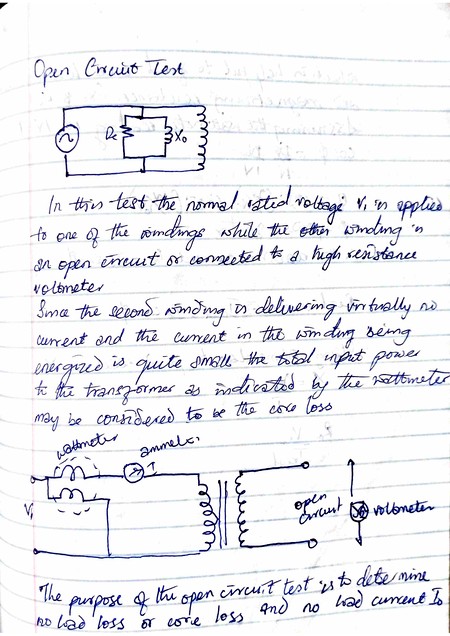 Open Circuit Test
Rc
Xo
In this test the normal rated voltage V1 is applied
to one of the windings while the other winding is
an open circuit or connected to a high resistance
voltmeter
Since the second winding is delivering virtually no
current and the current in the winding being
energized is quite small the total input power
to the transformer as indicated by the wattmeter
may be considered to be the core loss
wattmeter
ammeter
I
V1
open
circuit
voltmeter
The purpose of the open circuit test is to determine
no load loss or core loss and no load current Io